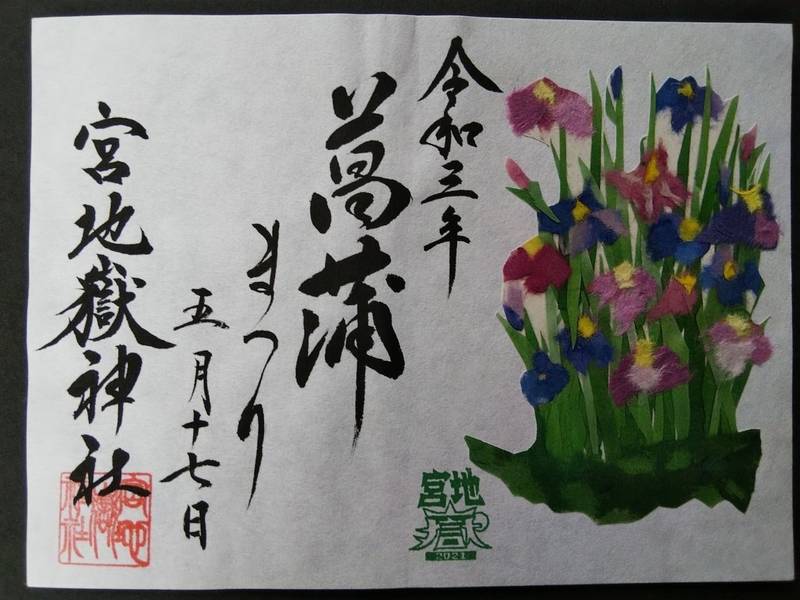 令和三年
菖蒲
まつり
五月十七日
宮地嶽神社
宮地
嶽
2021